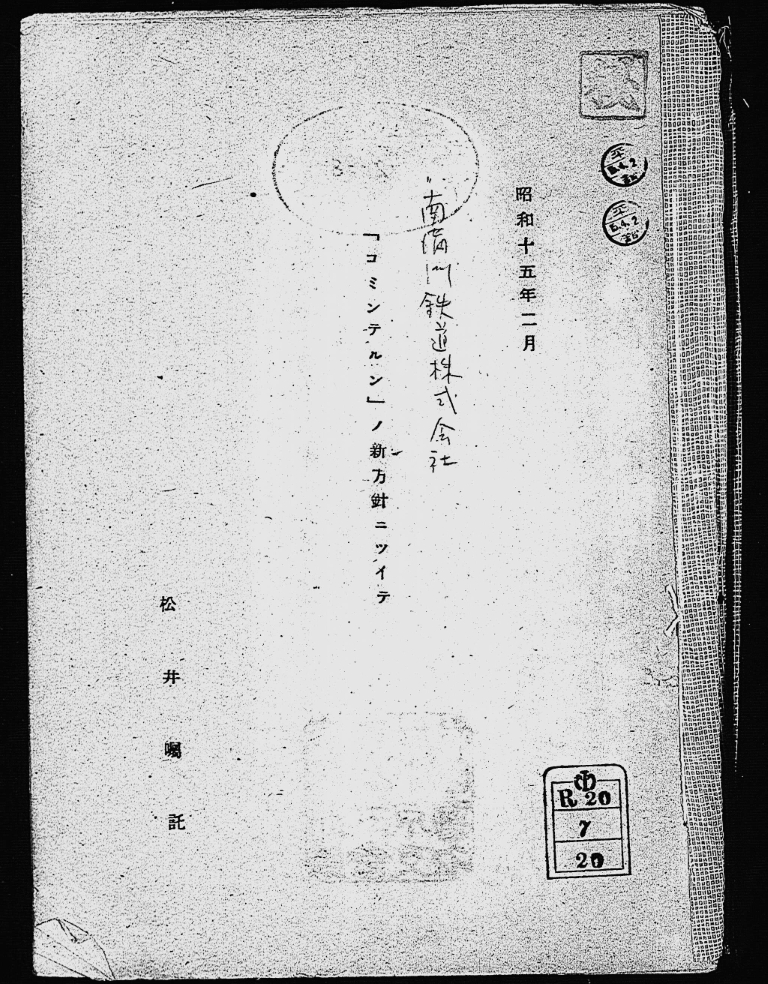 昭和十五年二月
南満州鉄道株式会社
「コミンテルン」ノ新方針ニツイテ
松井嘱託
R 20
7
20